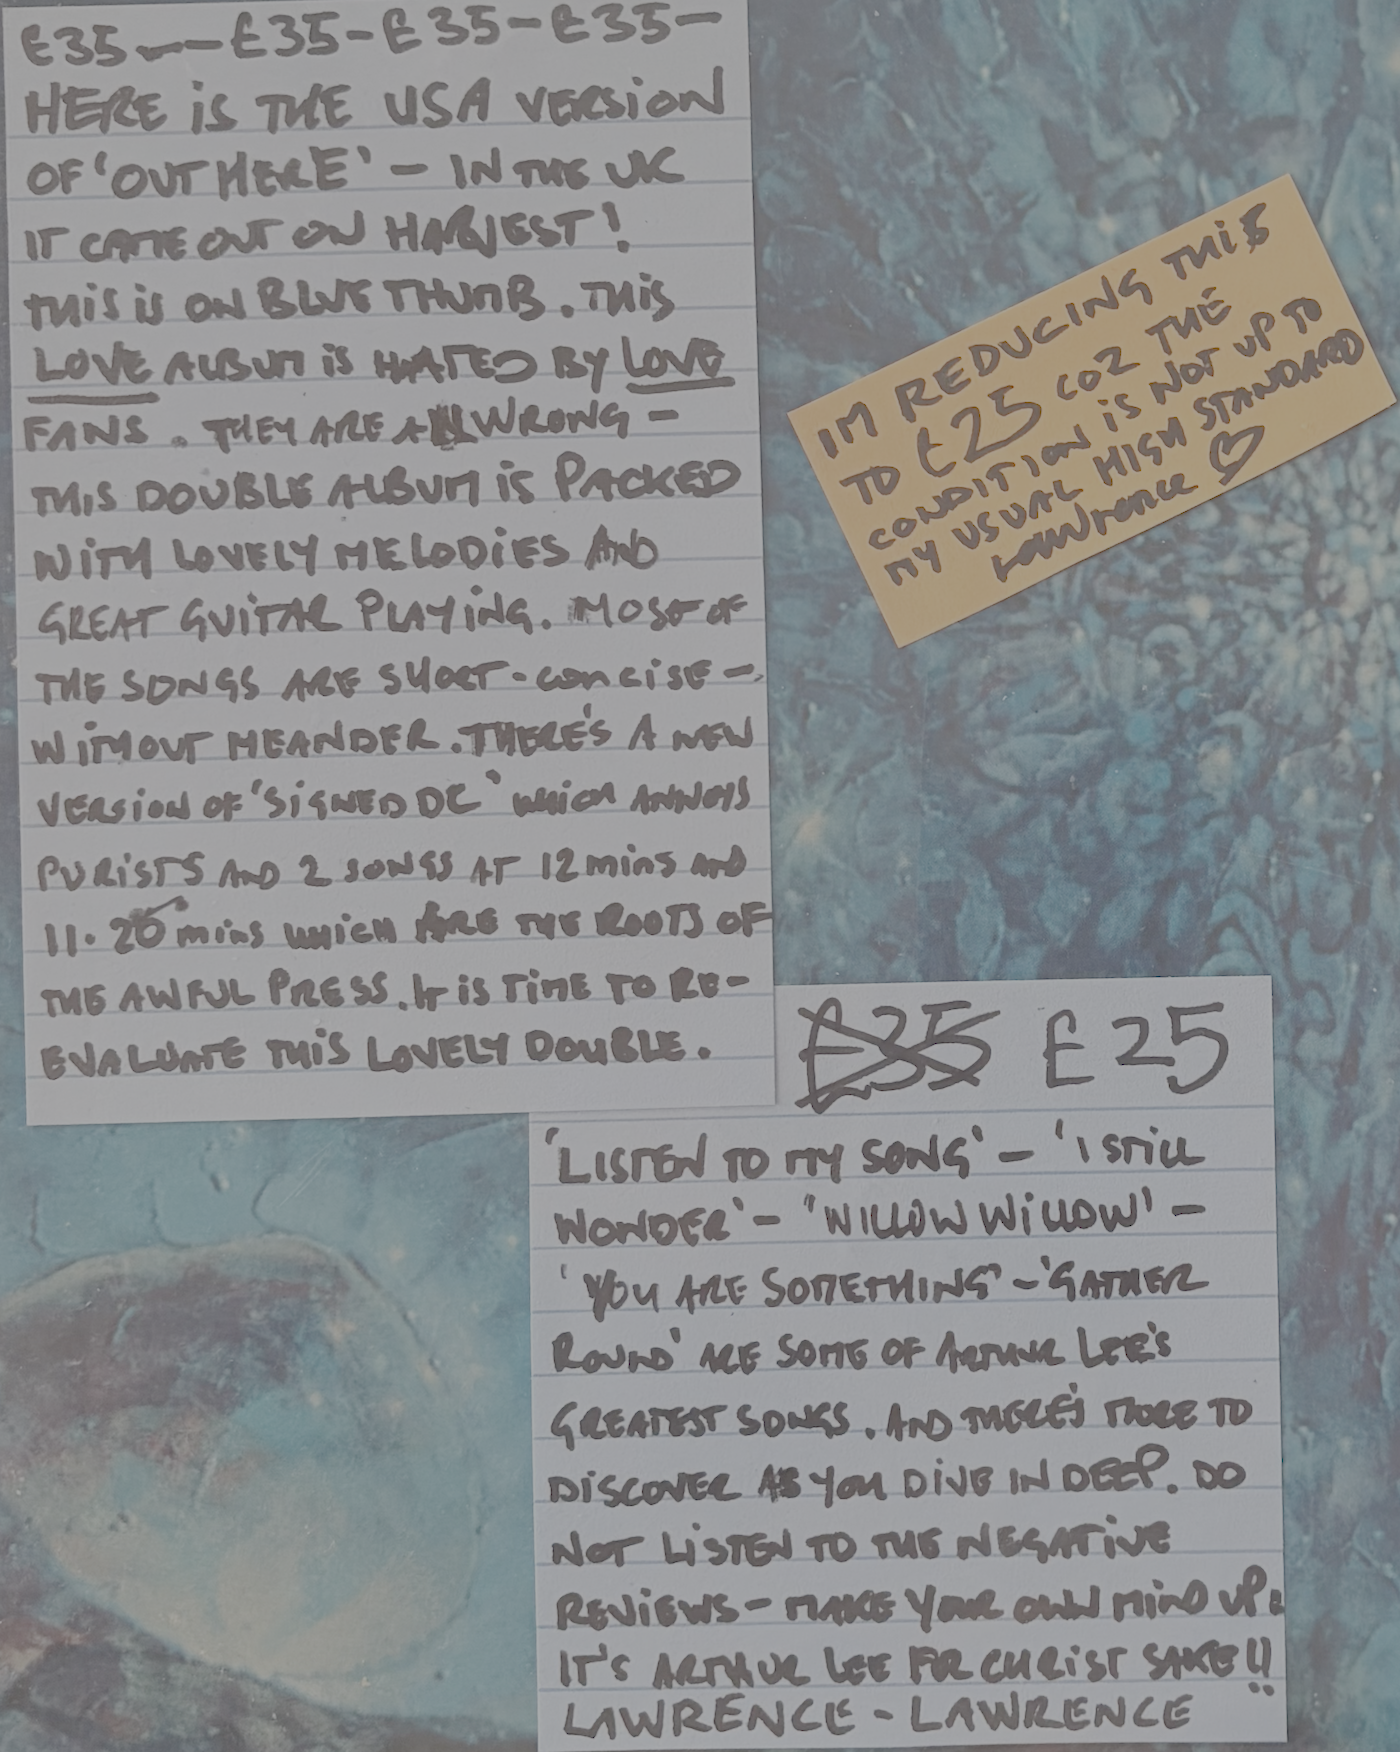 £35——£35-£35-£35-
HERE iS THE USA VERSION
OF 'OUT HERE' - IN THE UK
IT CAME OUT ON HARVEST!
THIS iS ON BLUE THUMB. THIS
LOVE ALBUM iS HATED BY LOVE
FANS. THEY ARE ALL WRONG -
THIS DOUBLE ALBUM iS PACKED
WITH LOVELY MELODIES AND
GREAT GUITAR PLAYING. MOST OF
THE SONGS ARE SHORT-CONCISE-
WITHOUT MEANDER. THERE'S A NEW
VERSION OF 'SIGNED DC' WHICH ANNOYS
PURISTS AND 2 SONGS AT 12 mins AND
11.20 mins WHICH ARE THE ROOTS OF
THE AWFUL PRESS. It iS TIME TO RE-
EVALUATE THIS LOVELY DOUBLE.
IM REDUCING THIS
TO £25 COZ THE
CONDITION iS NOT UP TO
MY USUAL HIGH STANDARD
LAWrence ♡
£35 £25
'LISTEN TO MY SONG' - 'I STILL
WONDER' - 'WILLOW WILLOW' -
'YOU ARE SOMETHING' - 'GATHER
ROUND' ARE SOME OF ARTHUR LEE'S
GREATEST SONGS. AND THERE'S MORE TO
DISCOVER AS YOU DIVE IN DEEP. DO
NOT LISTEN TO THE NEGATIVE
REVIEWS - MAKE YOUR OWN MIND UP.
IT'S ARTHUR LEE FOR CHRIST SAKE!!
LAWRENCE - LAWRENCE